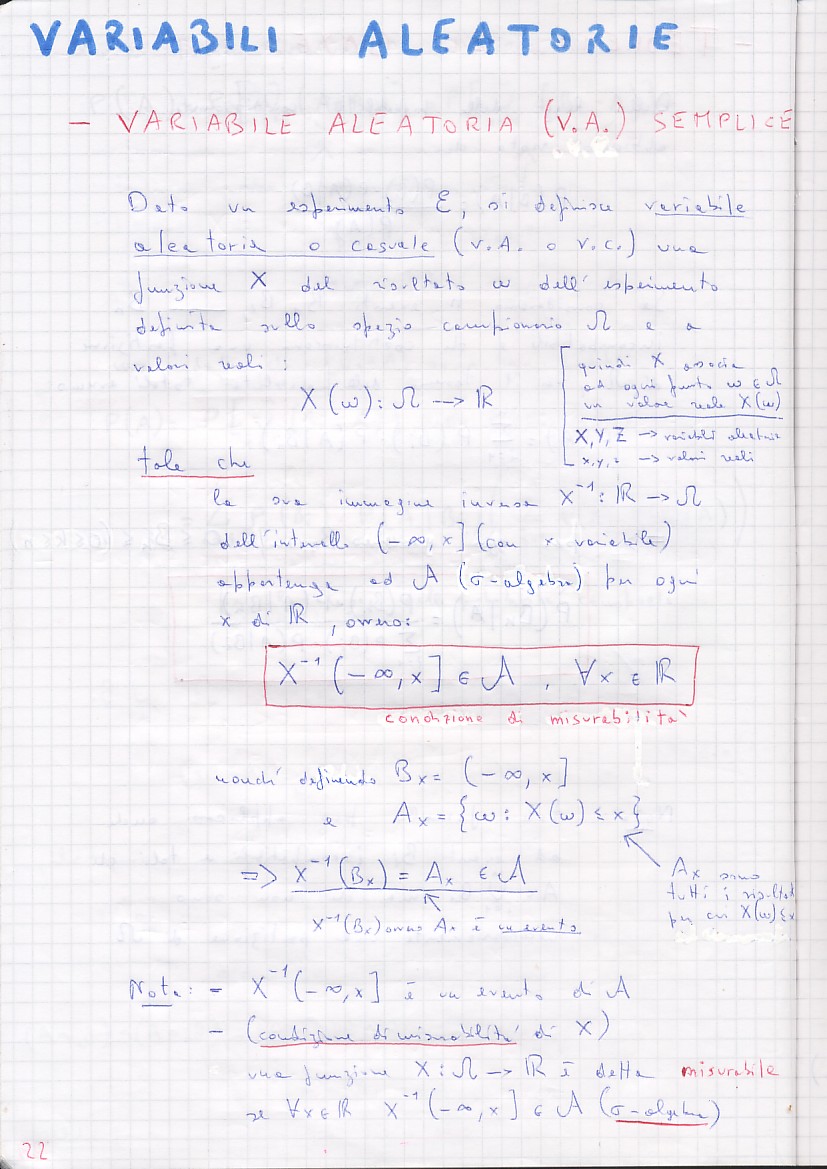 VARIABILI ALEATORIE
- VARIABILE ALEATORIA (V.A.) SEMPLICE
Dato un esperimento E, si definisce variabile
aleatoria o casuale (v.A. o v.c.) una
funzione X del risultato ω dell'esperimento
definita sullo spazio campionario Ω e a
valori reali:
X(ω): Ω → ℝ
quindi X associa
ad ogni punto ω ∈ Ω
un valore reale X(ω)
X,Y,Z → variabili aleatorie
x,y,z → valori reali
tale che
la sua immagine inversa X⁻¹: ℝ → Ω
dell'intervallo (-∞,x] (con x variabile)
appartenga ad A (σ-algebra) per ogni
x di ℝ, ovvero:
X⁻¹(-∞,x] ∈ A, ∀x ∈ ℝ
condizione di misurabilità
nonché definendo Bx = (-∞,x]
e Ax = {ω: X(ω) ≤ x}
=> X⁻¹(Bx) = Ax ∈ A
Ax sono
tutti i risultat
per cui X(ω)≤x
X⁻¹(Bx) ovvero Ax è un evento
Nota: - X⁻¹(-∞,x] è un evento di A
- (condizione di misurabilità di X)
una funzione X: Ω → ℝ è detta misurabile
se ∀x∈ℝ X⁻¹(-∞,x] ∈ A (σ-algebra)
22